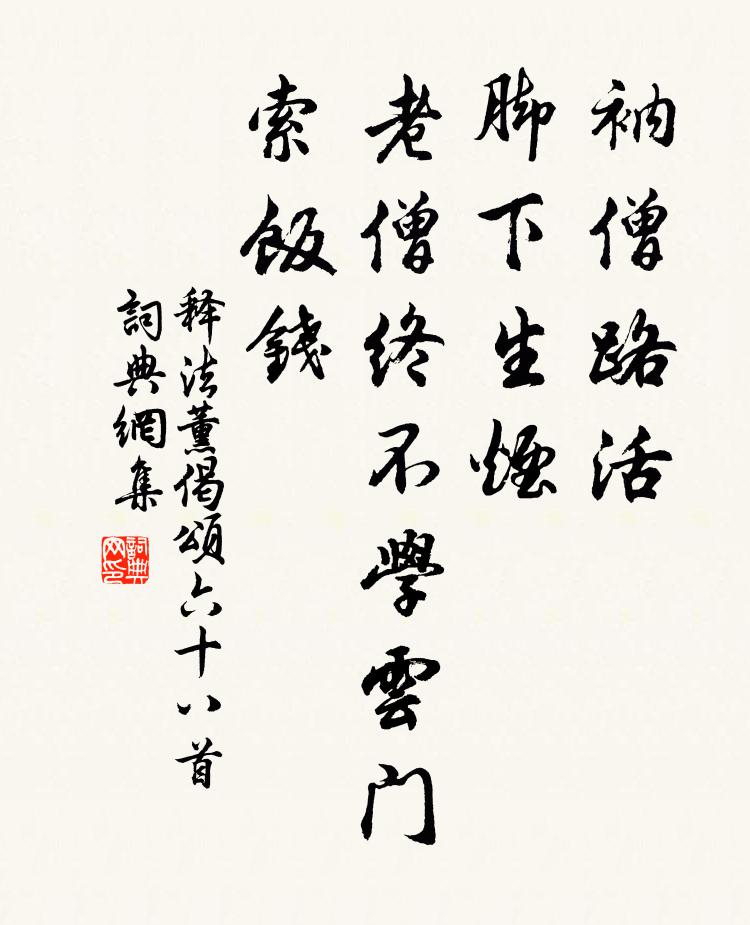 衲僧路活
脚下生煙
老僧終不學雲門
索飯錢
释法薰偈頌六十八首
詞典網集
詞典
网印